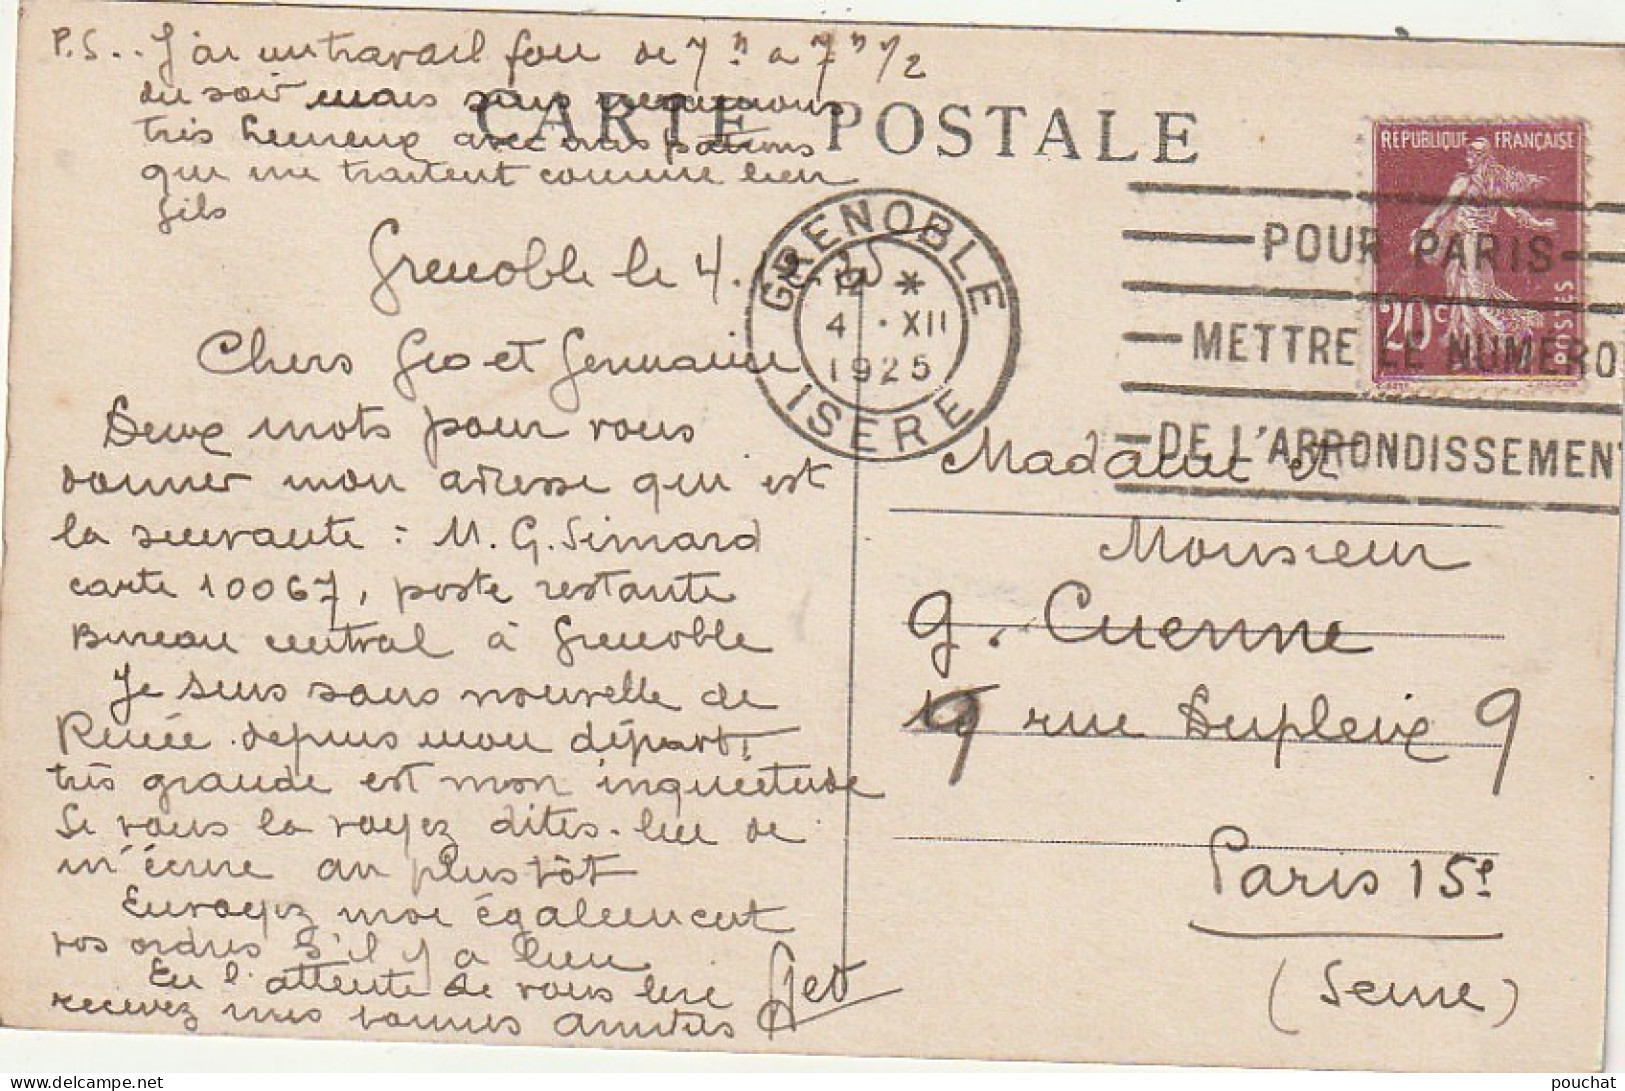 P.S.. J'ai un travail fou de 7h a 7h 1/2
du soir mais
très heureux avec mes patrons
qui me traitent comme leur
fils
CARTE POSTALE
Grenoble le 4.
Chers Geo et Germaine
Deux mots pour vous
donner mon adresse qui est
la suivante : M. G. Simard
carte 10067, poste restante
Bureau central à Grenoble
Je suis sans nouvelle de
Renée depuis mon départ,
très grande est mon inquietude
Si vous la voyez dites-lui de
m'écrire au plus tôt
Envoyez moi également
vos ordres s'il y a lieu
En l'attente de vous lire
recevez mes bonnes amitiés
GRENOBLE
12 *
4 · XII
1925
ISERE
REPUBLIQUE FRANÇAISE
20c
POSTES
POUR PARIS
METTRE LE NUMERO
DE L'ARRONDISSEMENT
Madame et
Monsieur
G. Cuenne
9 rue Dupleix 9
Paris 15e
(Seine)
delcampe.net
pouchat